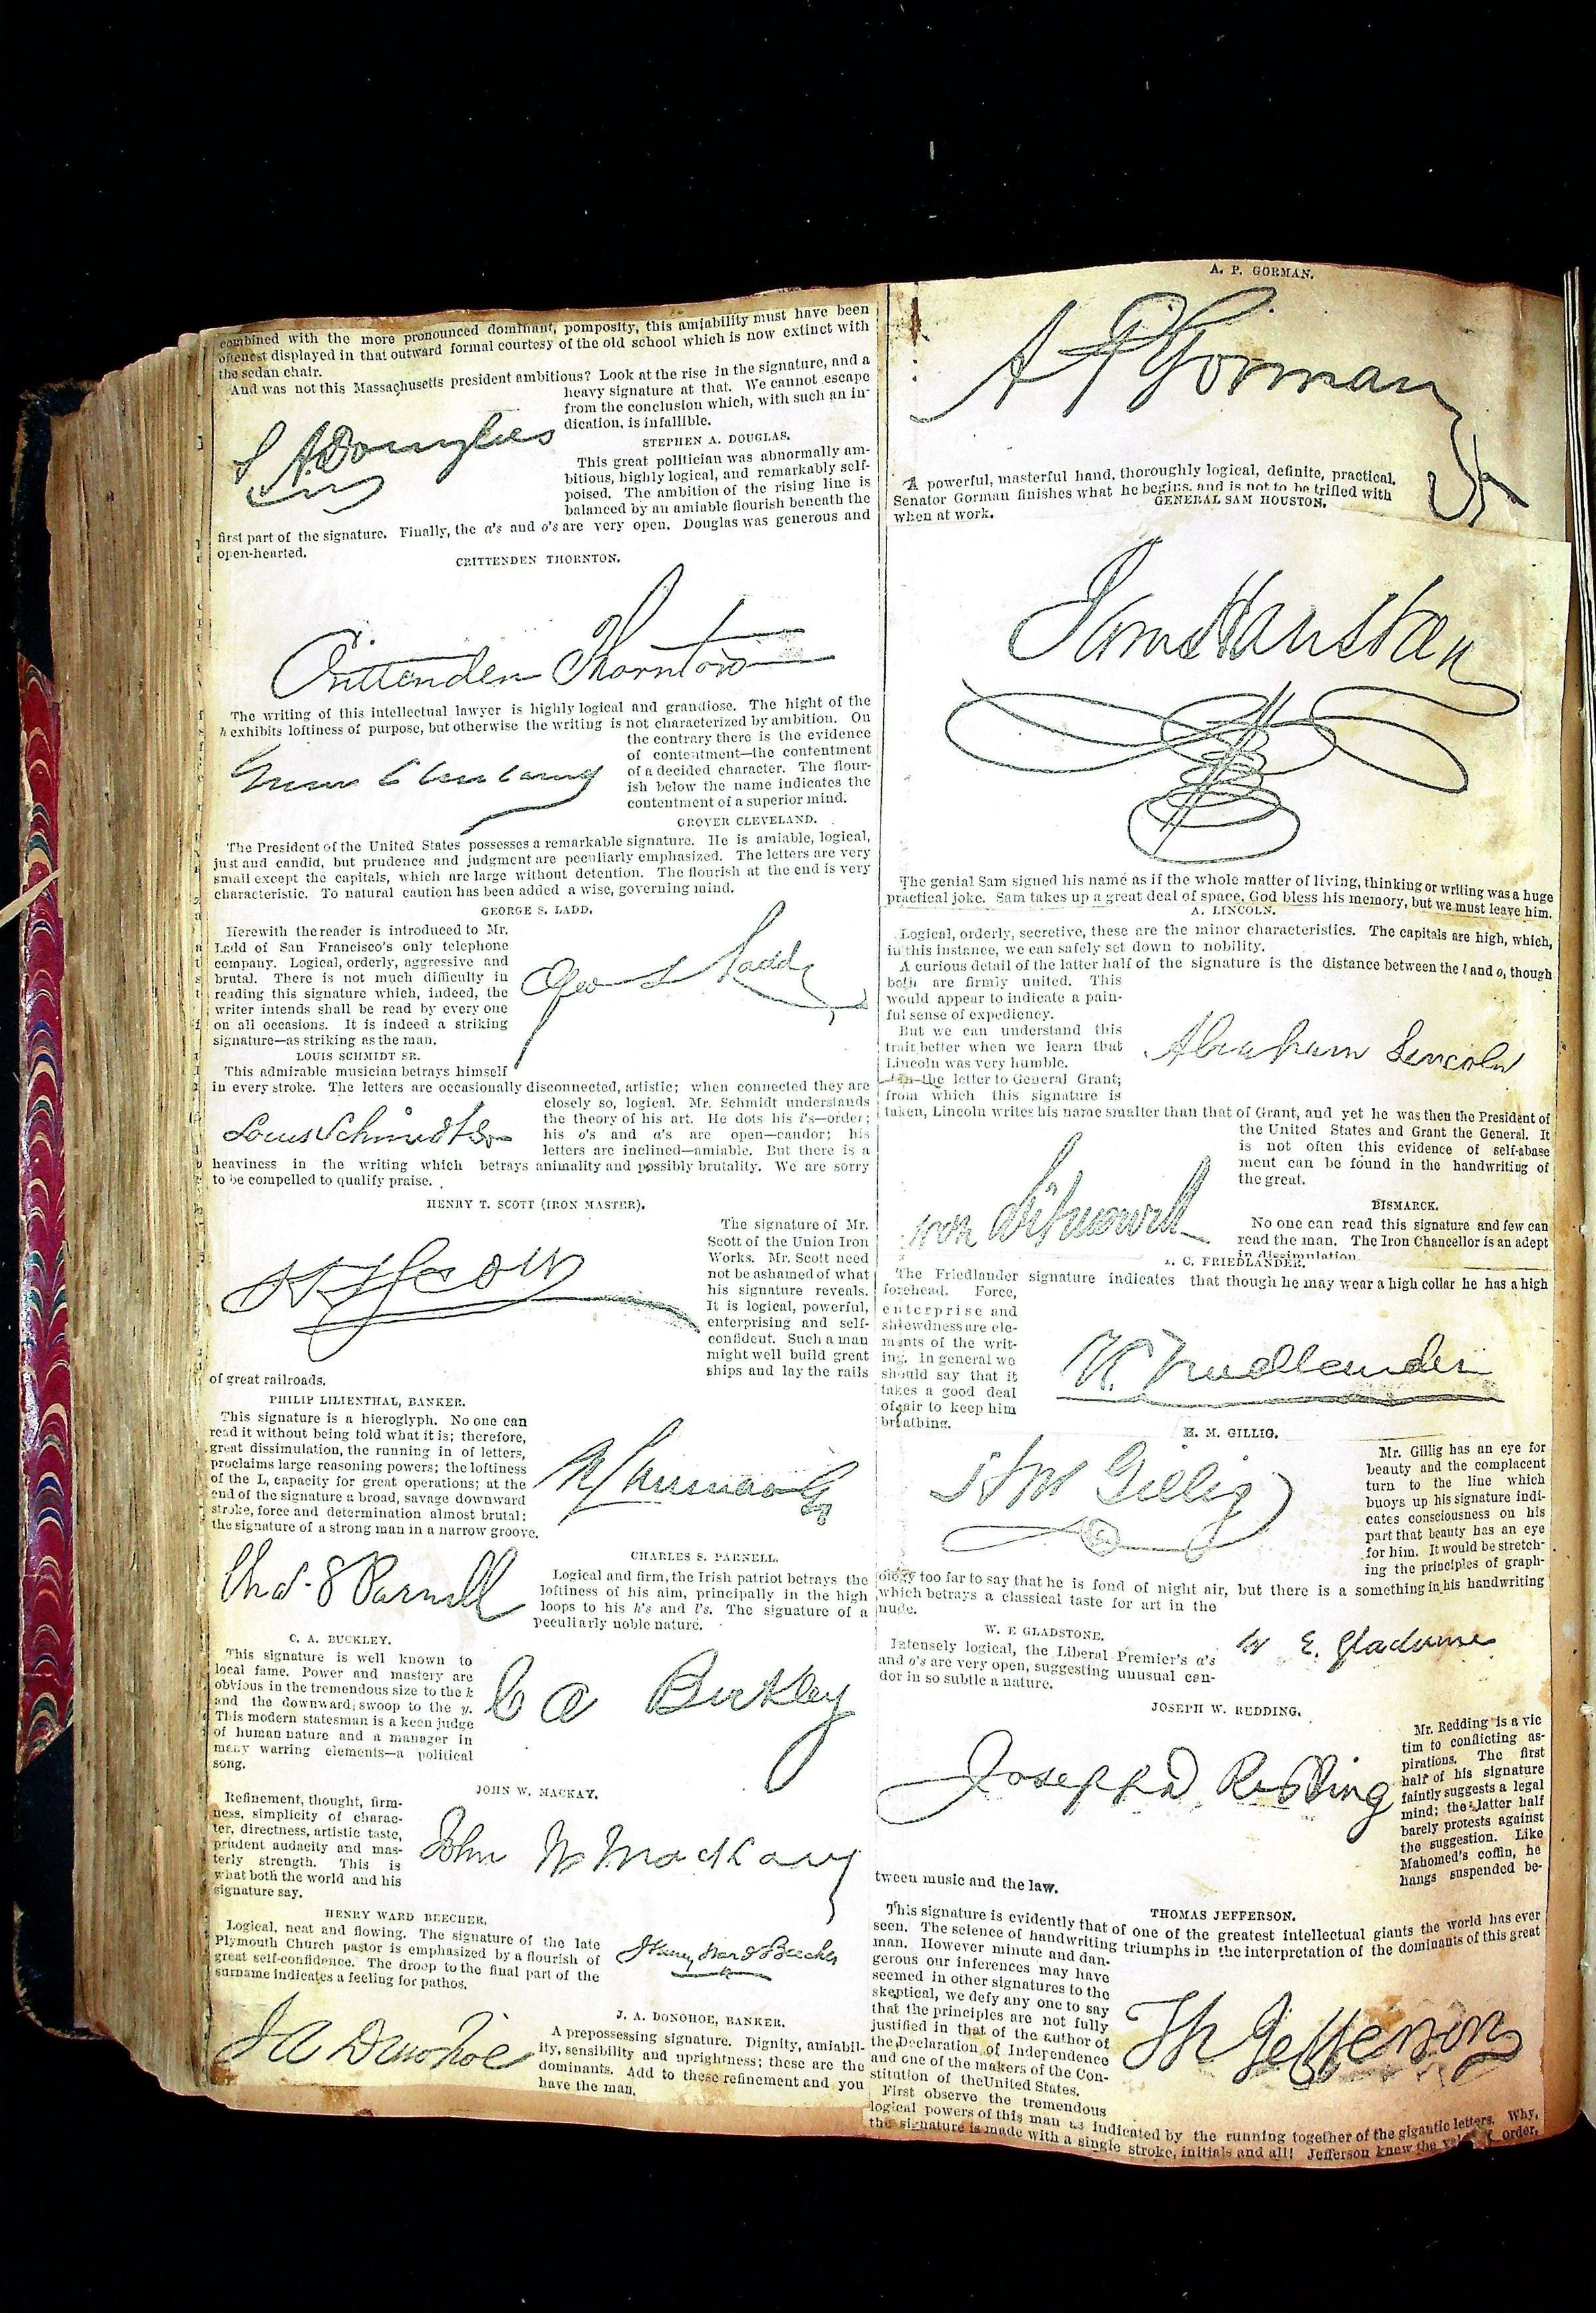 combined with the more pronounced dominant, pomposity, this amiability must have been
oftenest displayed in that outward formal courtesy of the old school which is now extinct with
the sedan chair.
And was not this Massachusetts president ambitious? Look at the rise in the signature, and a
heavy signature at that. We cannot escape
from the conclusion which, with such an in-
dication, is infallible.
S A Douglas
STEPHEN A. DOUGLAS.
This great politician was abnormally am-
bitious, highly logical, and remarkably self-
poised. The ambition of the rising line is
balanced by an amiable flourish beneath the
first part of the signature. Finally, the a's and o's are very open. Douglas was generous and
open-hearted.
CRITTENDEN THORNTON.
Crittenden Thornton
The writing of this intellectual lawyer is highly logical and grandiose. The hight of the
h exhibits loftiness of purpose, but otherwise the writing is not characterized by ambition. On
the contrary there is the evidence
of contentment—the contentment
of a decided character. The flour-
ish below the name indicates the
contentment of a superior mind.
Grover Cleveland
GROVER CLEVELAND.
The President of the United States possesses a remarkable signature. He is amiable, logical,
just and candid, but prudence and judgment are peculiarly emphasized. The letters are very
small except the capitals, which are large without detention. The flourish at the end is very
characteristic. To natural caution has been added a wise, governing mind.
GEORGE S. LADD.
Herewith the reader is introduced to Mr.
Ladd of San Francisco's only telephone
company. Logical, orderly, aggressive and
brutal. There is not much difficulty in
reading this signature which, indeed, the
writer intends shall be read by every one
on all occasions. It is indeed a striking
signature—as striking as the man.
Geo S Ladd
LOUIS SCHMIDT SR.
This admirable musician betrays himself
in every stroke. The letters are occasionally disconnected, artistic; when connected they are
closely so, logical. Mr. Schmidt understands
the theory of his art. He dots his i's—order;
his o's and a's are open—candor; his
letters are inclined—amiable. But there is a
Louis Schmidt Sr.
heaviness in the writing which betrays animality and possibly brutality. We are sorry
to be compelled to qualify praise.
HENRY T. SCOTT (IRON MASTER).
H T Scott
The signature of Mr.
Scott of the Union Iron
Works. Mr. Scott need
not be ashamed of what
his signature reveals.
It is logical, powerful,
enterprising and self-
confident. Such a man
might well build great
ships and lay the rails
of great railroads.
PHILIP LILIENTHAL, BANKER.
This signature is a hieroglyph. No one can
read it without being told what it is; therefore,
great dissimulation, the running in of letters,
proclaims large reasoning powers; the loftiness
of the L, capacity for great operations; at the
end of the signature a broad, savage downward
stroke, force and determination almost brutal;
the signature of a strong man in a narrow groove.
Chas. S Parnell
CHARLES S. PARNELL.
Logical and firm, the Irish patriot betrays the
loftiness of his aim, principally in the high
loops to his h's and l's. The signature of a
peculiarly noble nature.
C. A. BUCKLEY.
This signature is well known to
local fame. Power and mastery are
obvious in the tremendous size to the k
and the downward swoop to the y.
This modern statesman is a keen judge
of human nature and a manager in
many warring elements—a political
song.
C A Buckley
JOHN W. MACKAY.
Refinement, thought, firm-
ness, simplicity of charac-
ter, directness, artistic taste,
prudent audacity and mas-
terly strength. This is
what both the world and his
signature say.
John W Mackay
HENRY WARD BEECHER.
Logical, neat and flowing. The signature of the late
Plymouth Church pastor is emphasized by a flourish of
great self-confidence. The droop to the final part of the
surname indicates a feeling for pathos.
Henry Ward Beecher
J A Donohoe
J. A. DONOHOE, BANKER.
A prepossessing signature. Dignity, amiabil-
ity, sensibility and uprightness; these are the
dominants. Add to these refinement and you
have the man.
A. P. GORMAN.
A P Gorman
A powerful, masterful hand, thoroughly logical, definite, practical.
Senator Gorman finishes what he begins, and is not to be trifled with
when at work.
GENERAL SAM HOUSTON.
Sam Houston
The genial Sam signed his name as if the whole matter of living, thinking or writing was a huge
practical joke. Sam takes up a great deal of space, God bless his memory, but we must leave him.
A. LINCOLN.
Logical, orderly, secretive, these are the minor characteristics. The capitals are high, which,
in this instance, we can safely set down to nobility.
A curious detail of the latter half of the signature is the distance between the l and o, though
both are firmly united. This
would appear to indicate a pain-
ful sense of expediency.
But we can understand this
trait better when we learn that
Lincoln was very humble.
the letter to General Grant;
from which this signature is
Abraham Lincoln
taken, Lincoln writes his name smaller than that of Grant, and yet he was then the President of
the United States and Grant the General. It
is not often this evidence of self-abase
ment can be found in the handwriting of
the great.
von Bismarck
BISMARCK.
No one can read this signature and few can
read the man. The Iron Chancellor is an adept
in dissimulation.
C. FRIEDLANDER.
The Friedlander signature indicates that though he may wear a high collar he has a high
forehead. Force,
enterprise and
shrewdness are ele-
ments of the writ-
ing. In general we
should say that it
takes a good deal
of air to keep him
breathing.
Friedlander
H. M. GILLIG.
H M Gillig
Mr. Gillig has an eye for
beauty and the complacent
turn to the line which
buoys up his signature indi-
cates consciousness on his
part that beauty has an eye
for him. It would be stretch-
ing the principles of graph-
ology too far to say that he is fond of night air, but there is a something in his handwriting
which betrays a classical taste for art in the
nude.
W. E GLADSTONE.
Intensely logical, the Liberal Premier's a's
and o's are very open, suggesting unusual can-
dor in so subtle a nature.
W E. Gladstone
JOSEPH W. REDDING.
Joseph D Redding
Mr. Redding is a vic
tim to conflicting as-
pirations. The first
half of his signature
faintly suggests a legal
mind; the latter half
barely protests against
the suggestion. Like
Mahomed's coffin, he
hangs suspended be-
tween music and the law.
THOMAS JEFFERSON.
This signature is evidently that of one of the greatest intellectual giants the world has ever
seen. The science of handwriting triumphs in the interpretation of the dominants of this great
man. However minute and dan-
gerous our inferences may have
seemed in other signatures to the
skeptical, we defy any one to say
that the principles are not fully
justified in that of the author of
the Declaration of Independence
and one of the makers of the Con-
stitution of theUnited States.
First observe the tremendous
Th Jefferson
logical powers of this man as indicated by the running together of the gigantic letters. Why,
the signature is made with a single stroke, initials and all! Jefferson knew the order,